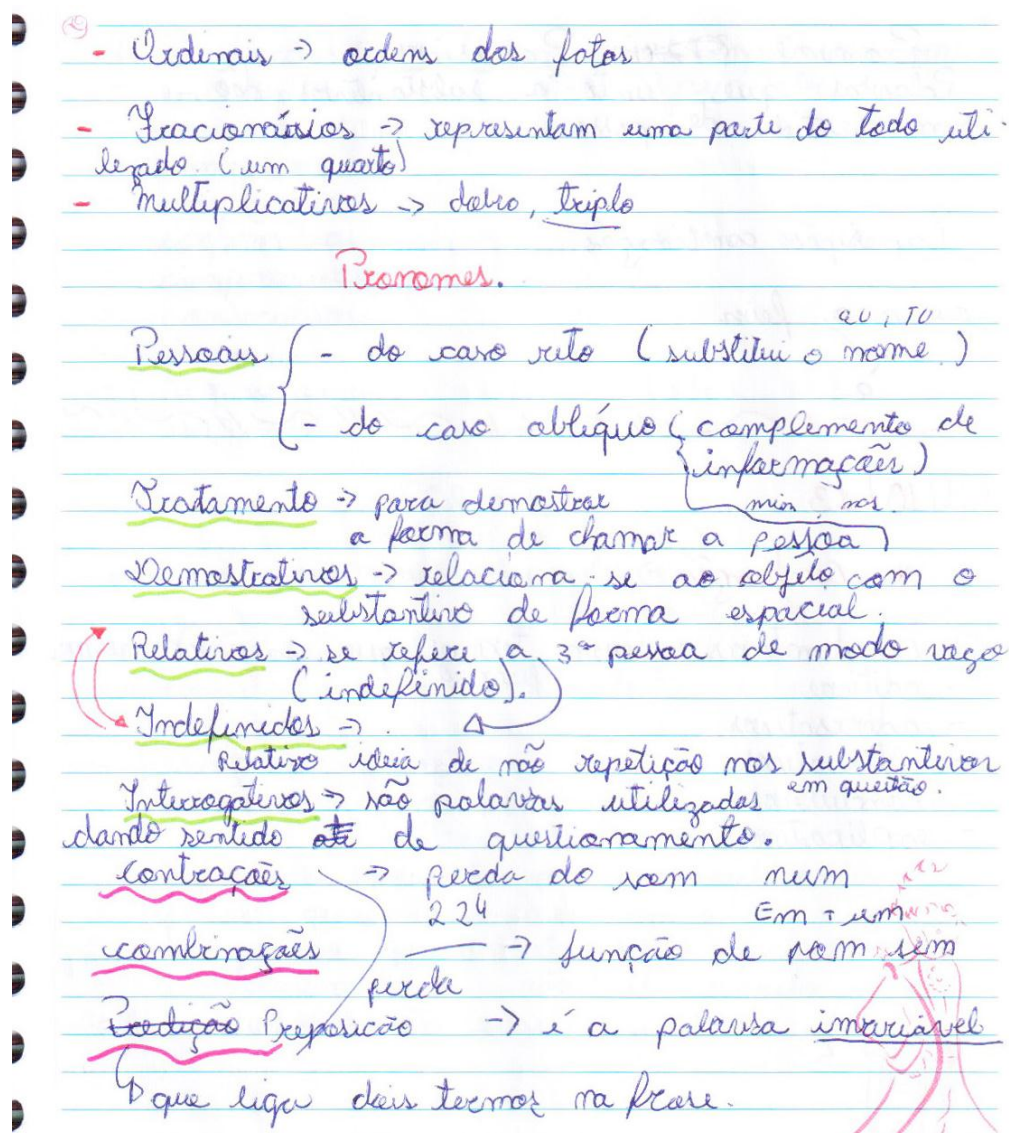 - Ordinais -> ordens dos fotos
- Fracionários -> representam uma parte do todo uti-
lizado. (um quarto)
- Multiplicativos -> dobro, triplo
Pronomes.
eu, TU
Pessoais { - do caso reto (substitui o nome)
- do caso oblíquo (complemento de
informações)
Tratamento -> para demostrar mim, nos.
a forma de chamar a pessoa
Demostrativos -> relaciona-se ao objeto com o
substantivo de forma espacial.
Relativos -> se refere a 3ª pessoa de modo vago
(indefinido).
Indefinidos -> .
Relativo ideia de não repetição nos substantivos
em questão.
Interrogativos -> são palavras utilizadas
dando sentido de questionamento.
contrações -> perda do som num
224 Em + um
combinações -> função de som sem
perda
Preposicão -> é a palavra invariável
que liga dois termos na frase.